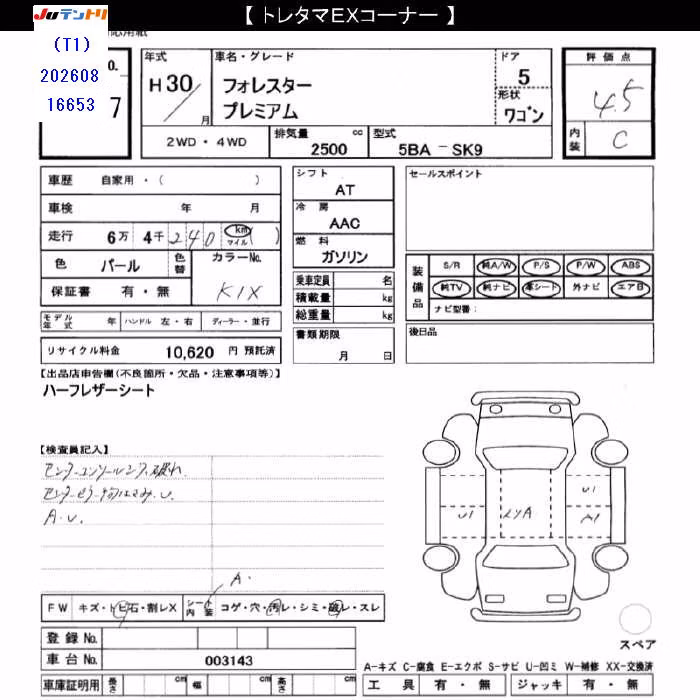 【 トレタマEXコーナー 】
JUテントリ
(T1)
202608
16653
o.
7
年式
H 30 /
月
車名・グレード
フォレスター
プレミアム
ドア
5
形状
ワゴン
評価点
4.5
内装
C
2WD・4WD
排気量 cc
2500
型式
5BA － SK9
車歴 自家用・( )
車検 年 月
走行 6万 4千 2 4 0 km マイル ( )
色 パール 色替
カラーNo.
K1X
保証書 有・無
モデル年式 年 ハンドル 左・右 ディーラー・並行
リサイクル料金 10,620 円 預託済
シフト
AT
冷房
AAC
燃料
ガソリン
乗車定員 名
積載量 kg
総重量 kg
書類期限
月 日
セールスポイント
装備品
S/R 純A/W P/S P/W ABS
純TV 純ナビ 革シート 外ナビ エアB
ナビ型番:
後日品
【出品店申告欄(不良箇所・欠品・注意事項等)】
ハーフレザーシート
【検査員記入】
A.U.
A.
U1
U1
A1
FW キズ・トビ石・割レX シート内装 コゲ・穴・汚レ・シミ・破レ・スレ
登録 No.
車台 No. 003143
車庫証明用 長さ cm 幅 cm 高さ cm
スペア
A-キズ C-腐食 E-エクボ S-サビ U-凹ミ W-補修 XX-交換済
工具 有・無 ジャッキ 有・無